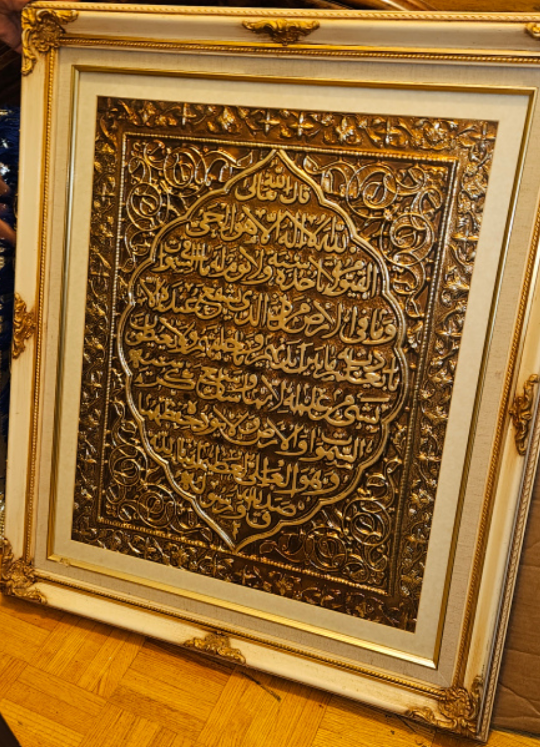 قال الله تعالى
الله لا اله الا هو الحي
القيوم لا تاخذه سنة ولا نوم له ما في السموات
وما في الارض من ذا الذي يشفع عنده الا
باذنه يعلم ما بين ايديهم وما خلفهم ولا يحيطون
بشيء من علمه الا بما شاء وسع كرسيه
السموات والارض ولا يؤده حفظهما
وهو العلي العظيم
صدق الله